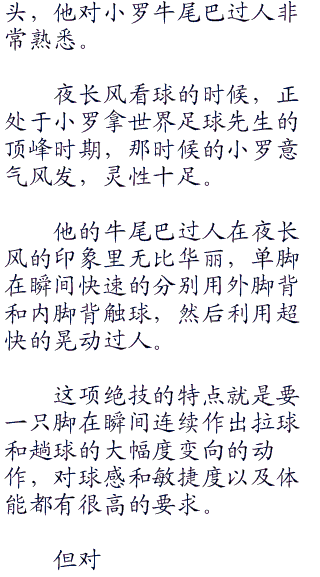 头，他对小罗牛尾巴过人非
常熟悉。
夜长风看球的时候，正
处于小罗拿世界足球先生的
顶峰时期，那时候的小罗意
气风发，灵性十足。
他的牛尾巴过人在夜长
风的印象里无比华丽，单脚
在瞬间快速的分别用外脚背
和内脚背触球，然后利用超
快的晃动过人。
这项绝技的特点就是要
一只脚在瞬间连续作出拉球
和趟球的大幅度变向的动
作，对球感和敏捷度以及体
能都有很高的要求。
但对